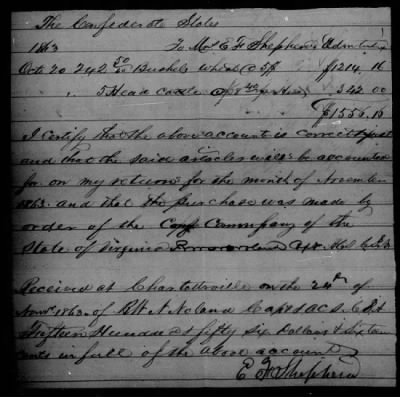 The Confederate States
1863 To Mrs E F Shepherd
Oct 20 242 50/60 Bushels Wheat @ 5$ $1214.16
" 5 Head Cattle 342 00
$1556.16
I certify that the above account is correct & just
and that the said articles will be accounted
for on my returns for the month of November
1863. and that the purchase was made by
order of the Commissary of the
State of Virginia
Received at Charlottesville on the 24th of
Novr 1863. of R W N Noland Capt & A C S C S A
Fifteen Hundred & fifty six Dollars & Sixteen
cents in full of the above account
E F Shepherd